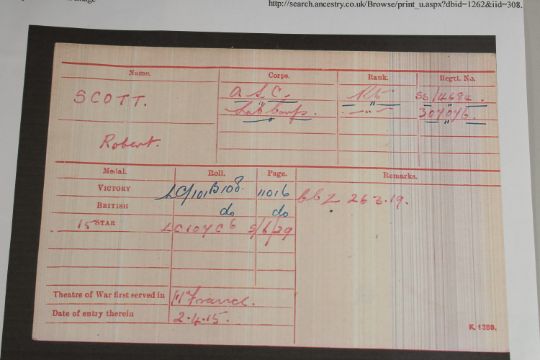 http://search.ancestry.co.uk/Browse/print_u.aspx?dbid=1262&iid=308.
Name. Corps. Rank. Regtl. No.
SCOTT. A.S.C. Pte SS/4694.
Lab Corps. " 307076.
Robert.
Medal. Roll. Page. Remarks.
VICTORY LC/101B108 11016 26.3.19.
BRITISH do do
15 STAR
Theatre of War first served in France.
Date of entry therein 2.4.15.
K. 1380.